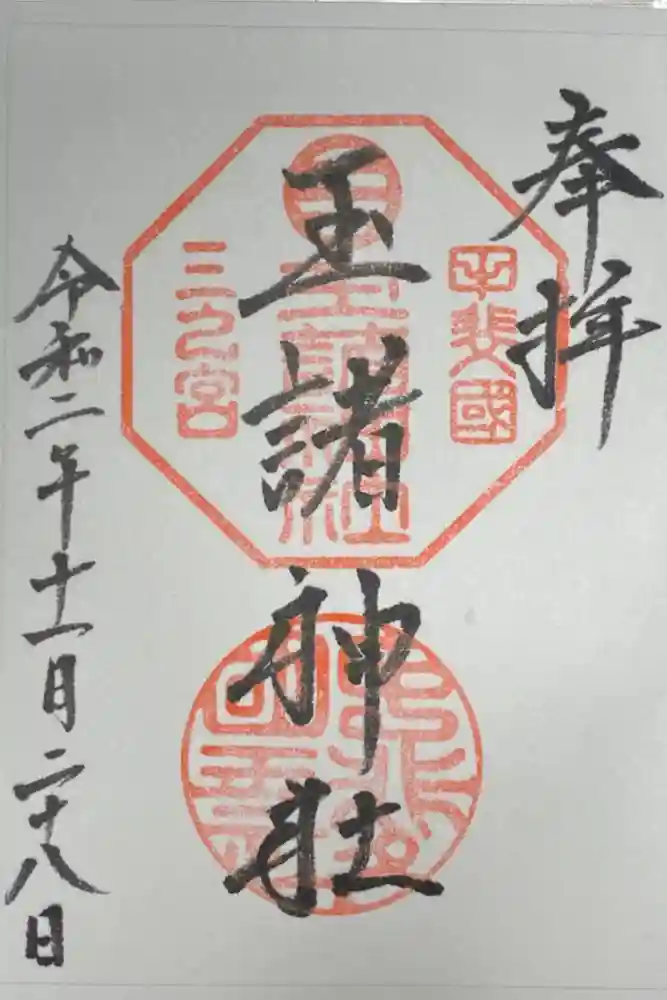 奉拝
甲斐國
玉諸神社
玉諸神社
三之宮
令和二年十一月二十八日